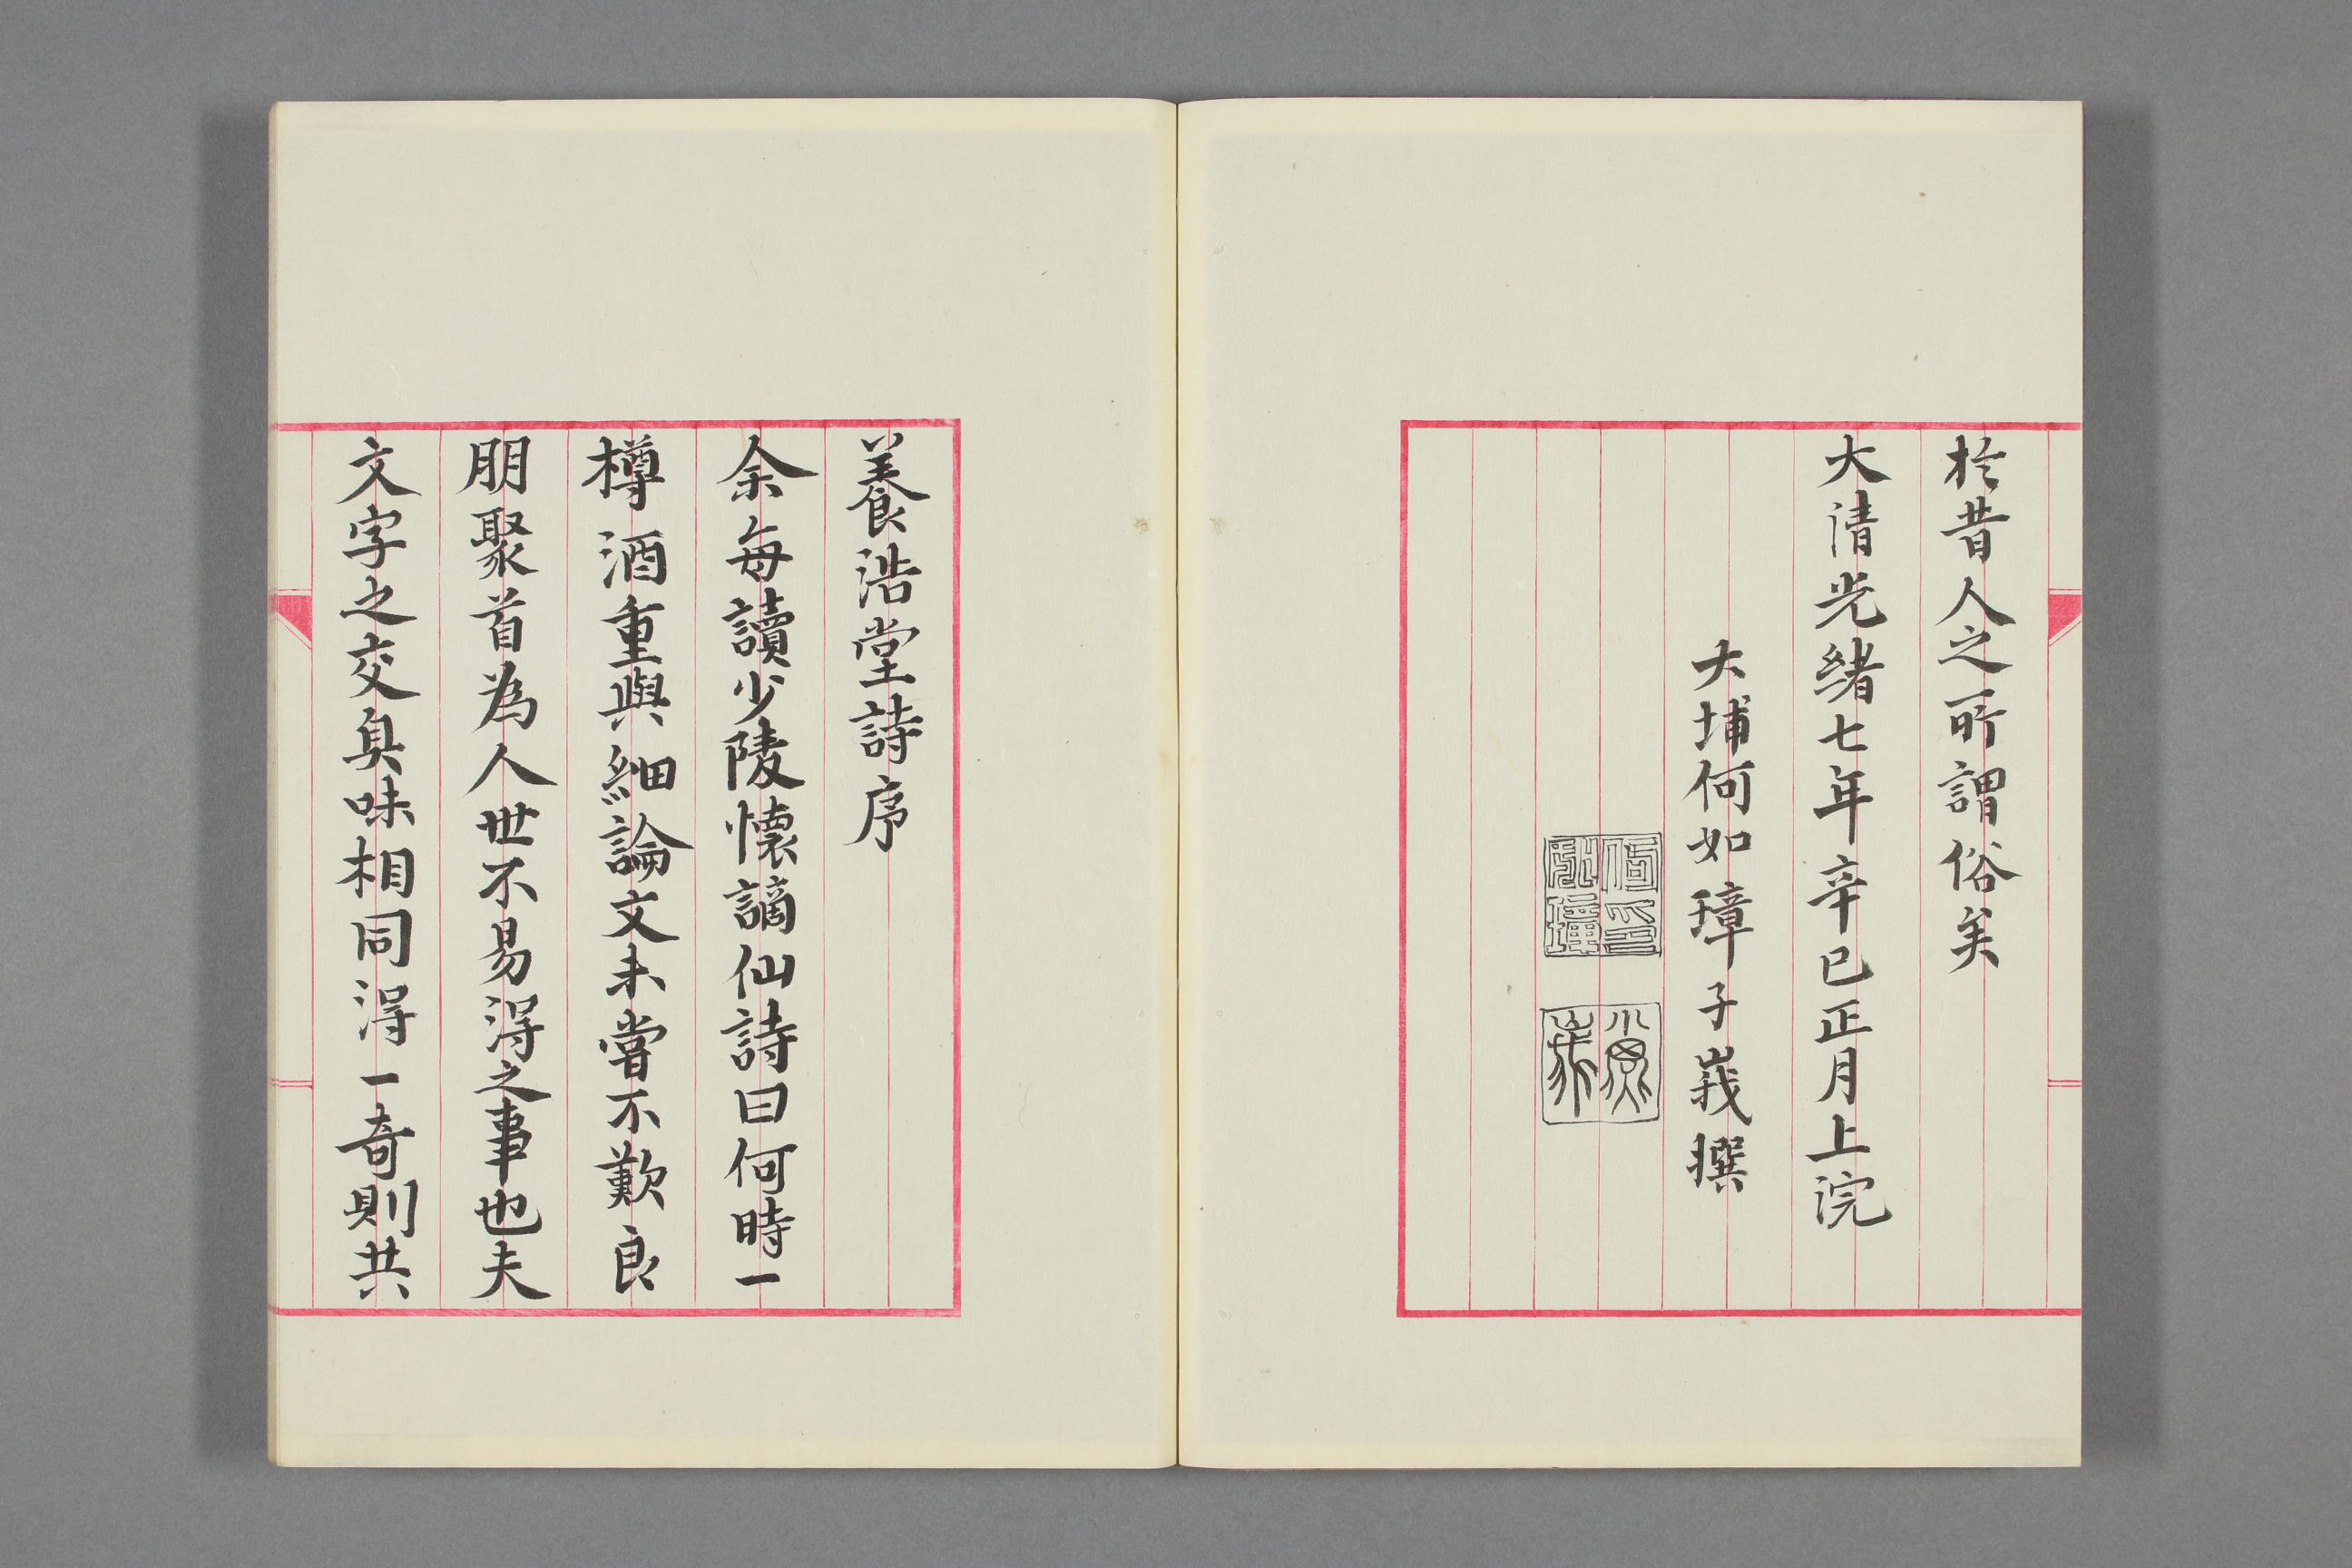 於昔人之所謂俗矣
大清光緒七年辛巳正月上浣
大埔何如璋子峩撰
何印
如璋
養浩堂詩序
余每讀少陵懷謫仙詩曰何時一
樽酒重與細論文未嘗不歎良
朋聚首為人世不易得之事也夫
文字之交臭味相同得一奇則共